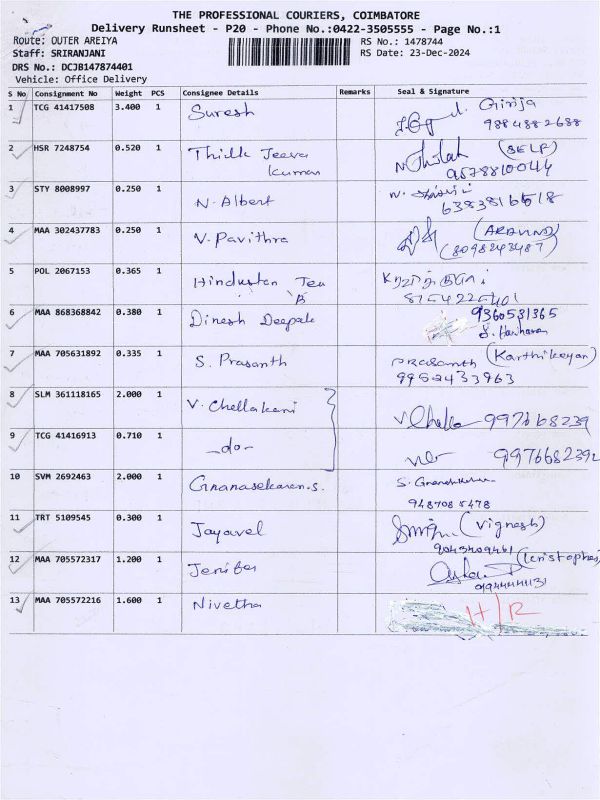 THE PROFESSIONAL COURIERS, COIMBATORE
Delivery Runsheet - P20 - Phone No.:0422-3505555 - Page No.:1
Route: OUTER AREIYA RS No.: 1478744
Staff: SRIRANJANI RS Date: 23-Dec-2024
DRS No.: DCJB147874401
Vehicle: Office Delivery
S No Consignment No Weight PCS Consignee Details Remarks Seal & Signature
1 TCG 41417508 3.400 1 Suresh Girija
9884882688
2 HSR 7248754 0.520 1 Thilk Jeeva Thilak (SELF)
Kumar 9578810044
3 STY 8008997 0.250 1 N. Albert
6383816518
4 MAA 302437783 0.250 1 V. Pavithra (ARAVIND)
(8098243487)
5 POL 2067153 0.365 1 Hindustan Tea
8154225401
6 MAA 868368842 0.380 1 Dinesh Deepak 9360531365
S. Hariharan
7 MAA 705631892 0.335 1 S. Prasanth Prasanth (Karthikeyan)
9952433963
8 SLM 361118165 2.000 1 V. Chellakani V Chella 997668239
9 TCG 41416913 0.710 1 -do- 9976682392
10 SVM 2692463 2.000 1 Gnanasekaren.s. S. Gnanasekaran
9487085478
11 TRT 5109545 0.300 1 Jayavel (Vignesh)
9043409461
12 MAA 705572317 1.200 1 Jenifer (Cristopher)
13 MAA 705572216 1.600 1 Nivetha H/R